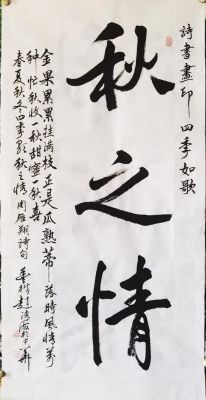 詩書畫印 四季如歌
秋之情
金果累累挂滿枝正是瓜熟蒂落時風情萬
种忙秋收一秋甜蜜一秋喜
春夏秋冬四季歌秋之情周雁翔詩句